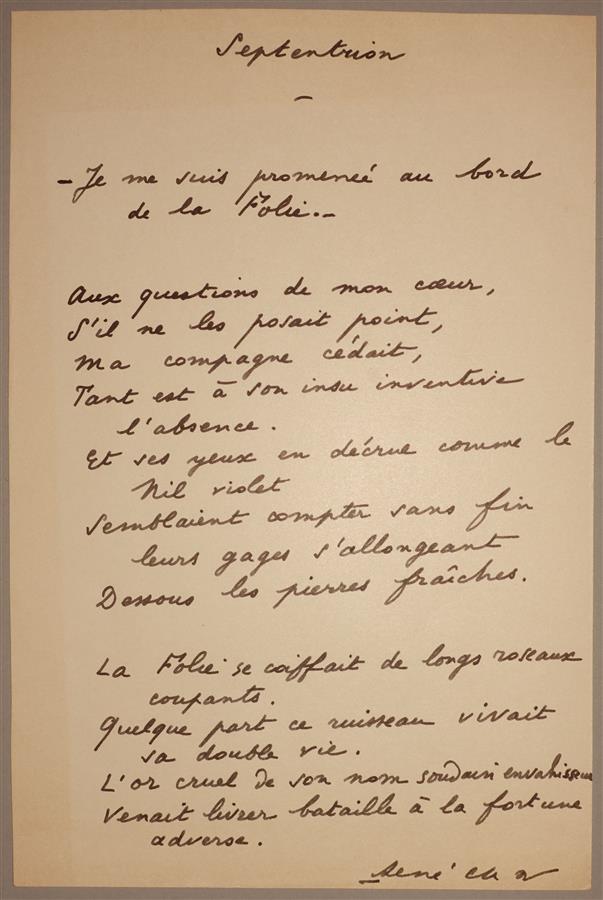 Septentrion
–
– Je me suis promeneé au bord
de la Folie. –
Aux questions de mon cœur,
S'il ne les posait point,
Ma compagne cédait,
Tant est à son insu inventive
l'absence.
Et ses yeux en décrue comme le
Nil violet
Semblaient compter sans fin
leurs gages s'allongeant
Dessous les pierres fraîches.
La Folie se coiffait de longs roseaux
coupants.
Quelque part ce ruisseau vivait
sa double vie.
L'or cruel de son nom soudain envahisseur
Venait livrer bataille à la fortune
adverse.
René Char